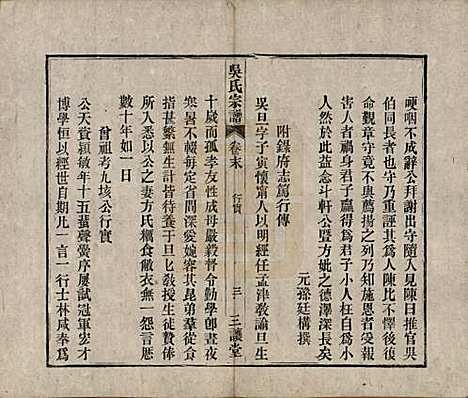 哽咽不成辭公拜謝出守隨人見陳日推官吳
伯同長者也守乃重誣其人陳比不懌後復
命觀章守竟不與薦揚乃知施恩者受報
害人者禍身君子贏得為君子小人枉自為小
人所以於此益念斗軒公暨方妣之德澤深長矣
元孫廷構撰
附錄府志篤行傳
吳旦字子寅懷甯人以明經任孟津教諭旦生
十歲而孤孝友性成母嚴毅督令勤學卽晝夜
弗懈不命之寢不敢寢深愛婉容其昆弟羣從
指甚繁無生計皆待養于旦乞教授生徒贄俸
所入悉以公之妻方氏糲食敝衣無一怨言歷
數十年如一日
曾祖考九垓公行實
公天資穎敏年十五蜚聲黌序屢試冠軍宏才
博學恒以經世自期凡一言一行士林咸奉為
吳氏宗譜
卷末
行實
三
三讓堂